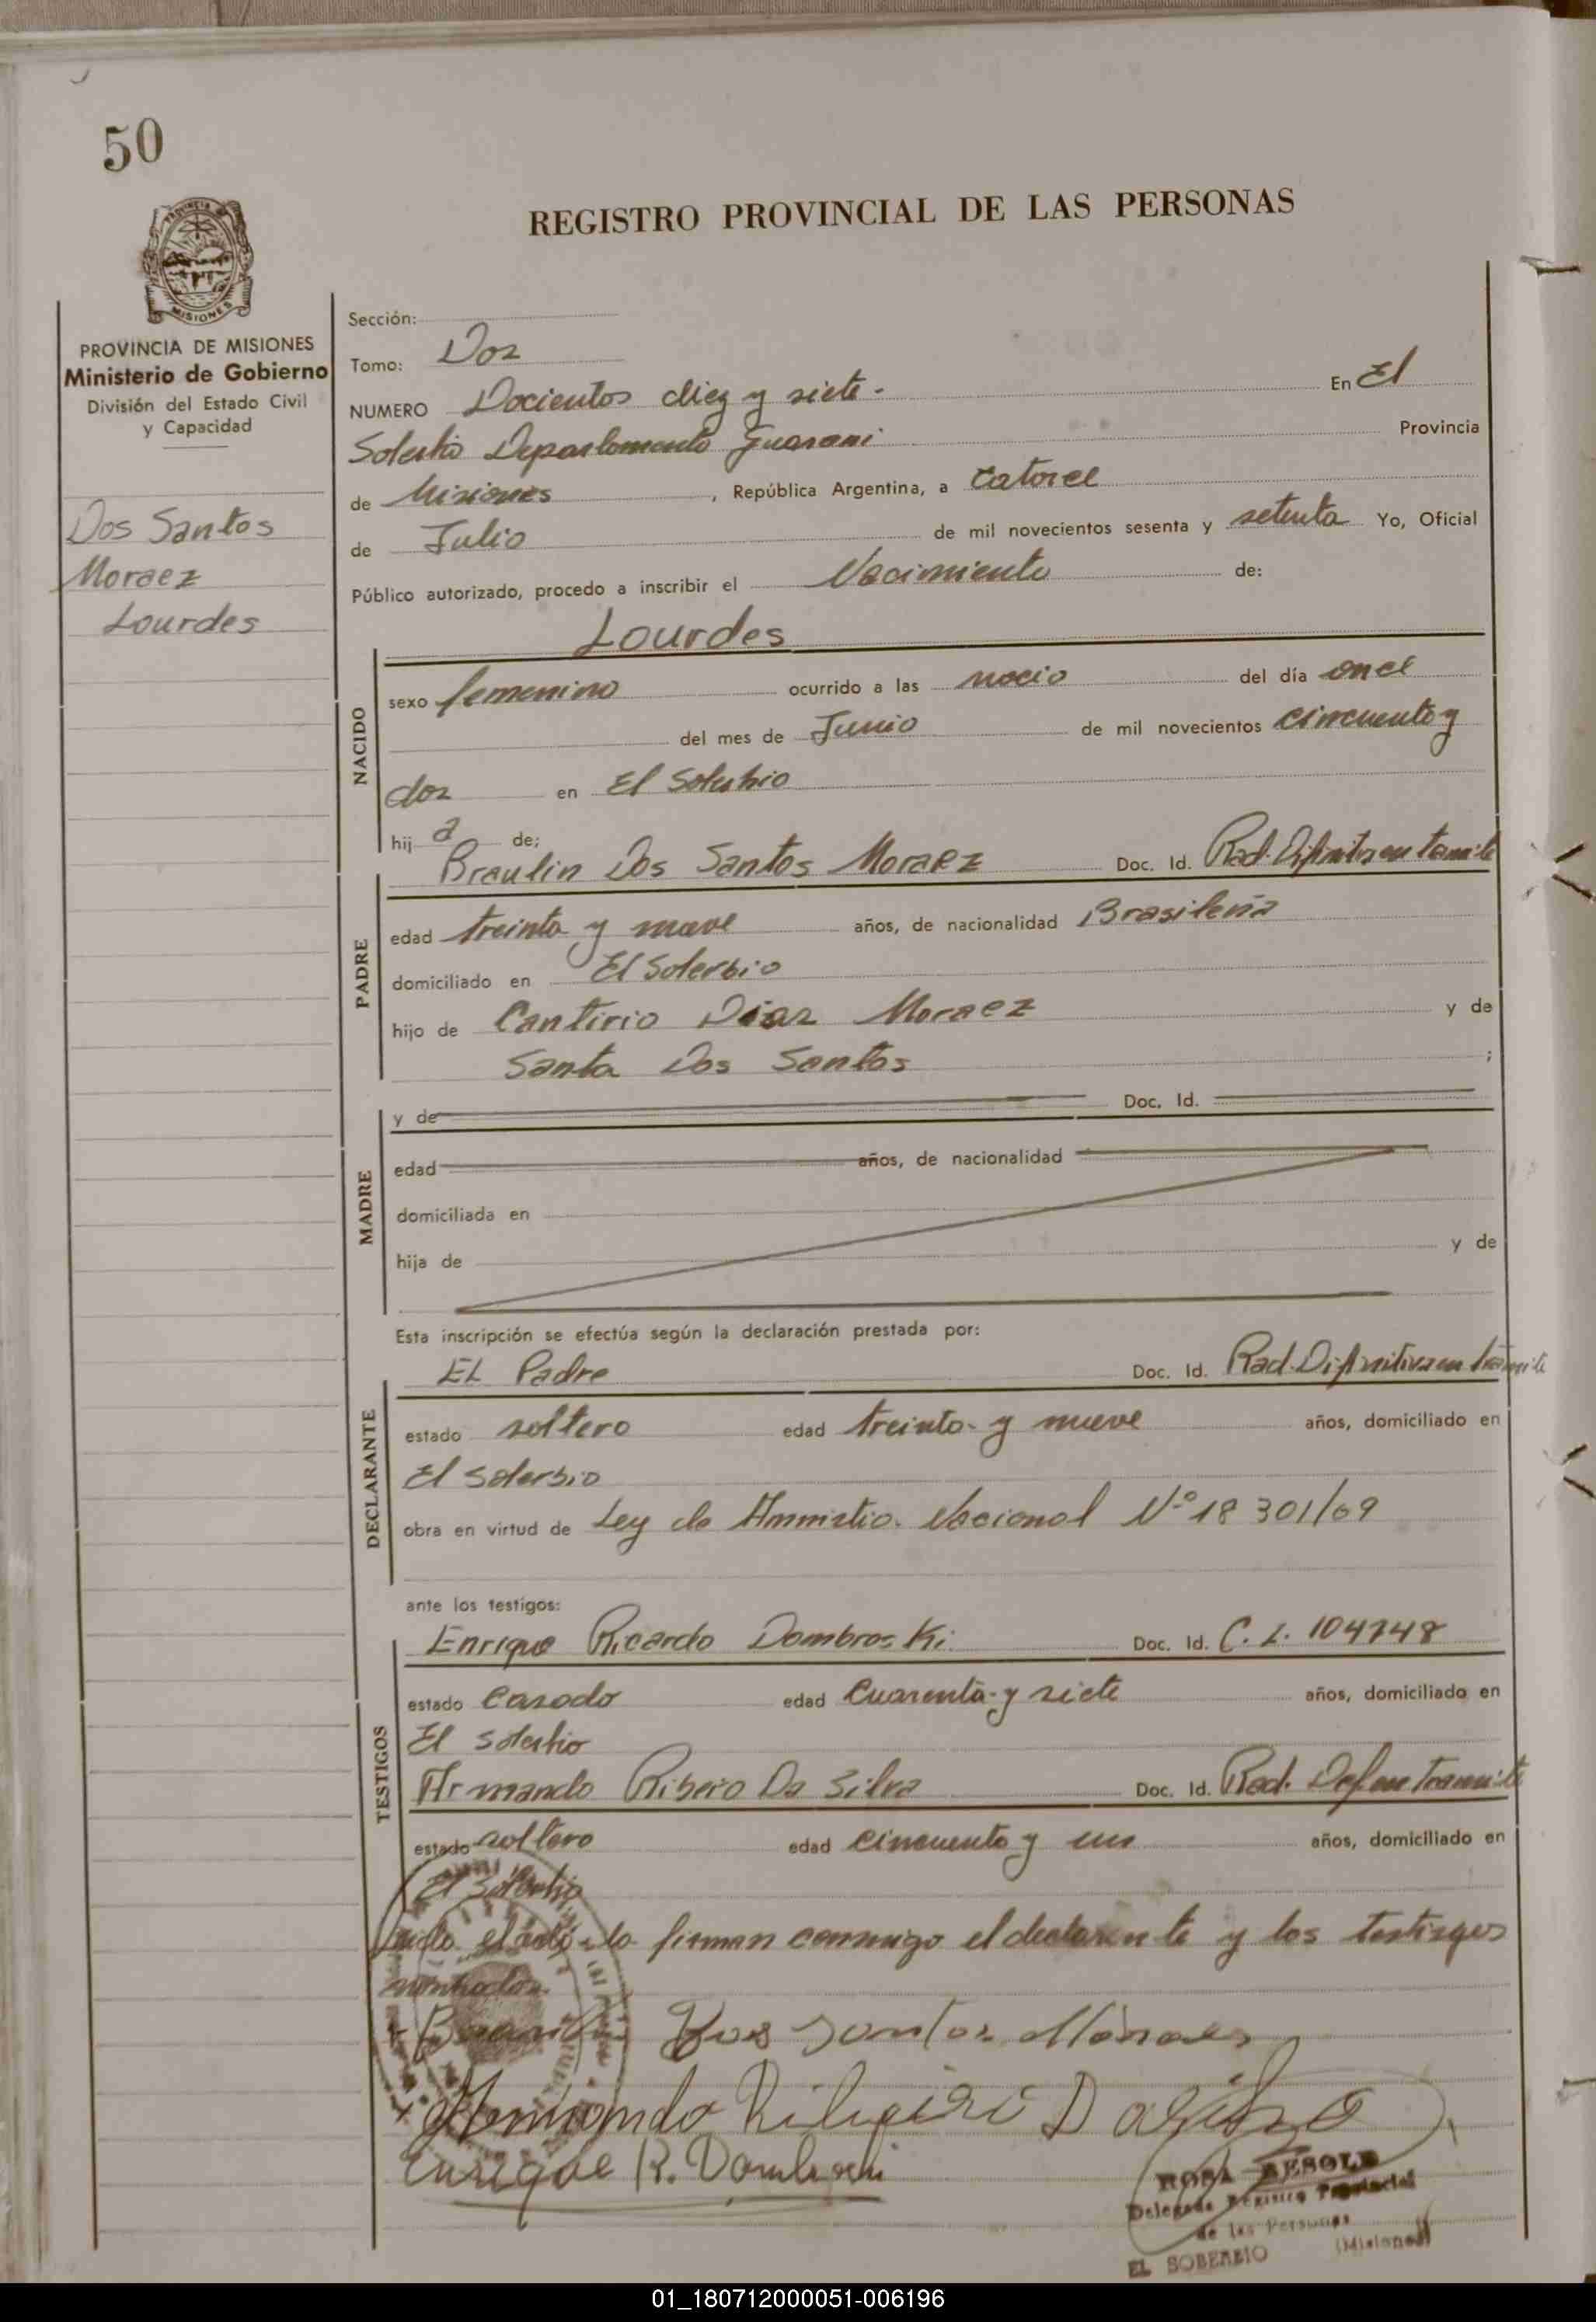 50
REGISTRO PROVINCIAL DE LAS PERSONAS
MISIONES
PROVINCIA DE MISIONES
Ministerio de Gobierno
División del Estado Civil
y Capacidad
Dos Santos
Moraez
Lourdes
Sección:
Tomo: Dos
NUMERO Docientos diez y siete.- En El
Soberbio Departamento Guarani Provincia
de Misiones, República Argentina, a catorce
de Julio de mil novecientos sesenta y setenta Yo, Oficial
Público autorizado, procedo a inscribir el Nacimiento de:
Lourdes
NACIDO
sexo femenino ocurrido a las del día once
del mes de Junio de mil novecientos cincuenta y
dos en El Soberbio
hij a de;
Braulin Dos Santos Moraez Doc. Id. Rad. Difinitiva en tramite
PADRE
edad treinta y nueve años, de nacionalidad Brasileña
domiciliado en El Soberbio
hijo de Cantirio Dias Moraez y de
Santa Dos Santos ;
MADRE
y de Doc. Id.
edad años, de nacionalidad
domiciliada en
hija de y de
Esta inscripción se efectúa según la declaración prestada por:
EL Padre Doc. Id. Rad. Difinitiva en tramite
DECLARANTE
estado soltero edad treinta y nueve años, domiciliado en
El Soberbio
obra en virtud de Ley de Amnistia Nacional Nº 18 301/69
ante los testigos:
Enrique Ricardo Dombroski Doc. Id. C. I. 104748
TESTIGOS
estado casado edad cuarenta y siete años, domiciliado en
El Soberbio
Armando Ribero Da Silva Doc. Id. Rad. Def en tramite
estado soltero edad cincuenta y un años, domiciliado en
El Soberbio
Leido el acta lo firman conmigo el declarante y los testigos
nombrados.
Dos Santos Moraes
Enrique R. Dombroski
ROSA BESOLD
Delegada Registro Provincial
de las Personas
EL SOBERBIO (Misiones)
01_180712000051-006196